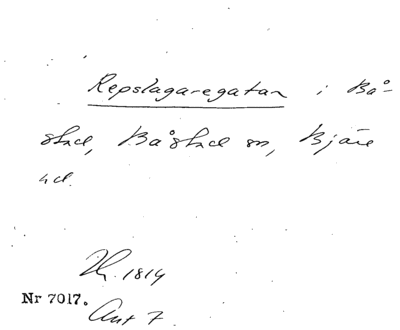 Repslagaregatan i Bå-
stad, Båstad sn, Bjäre
hd.
Vh. 1814
Nr 7017.
Ant 7